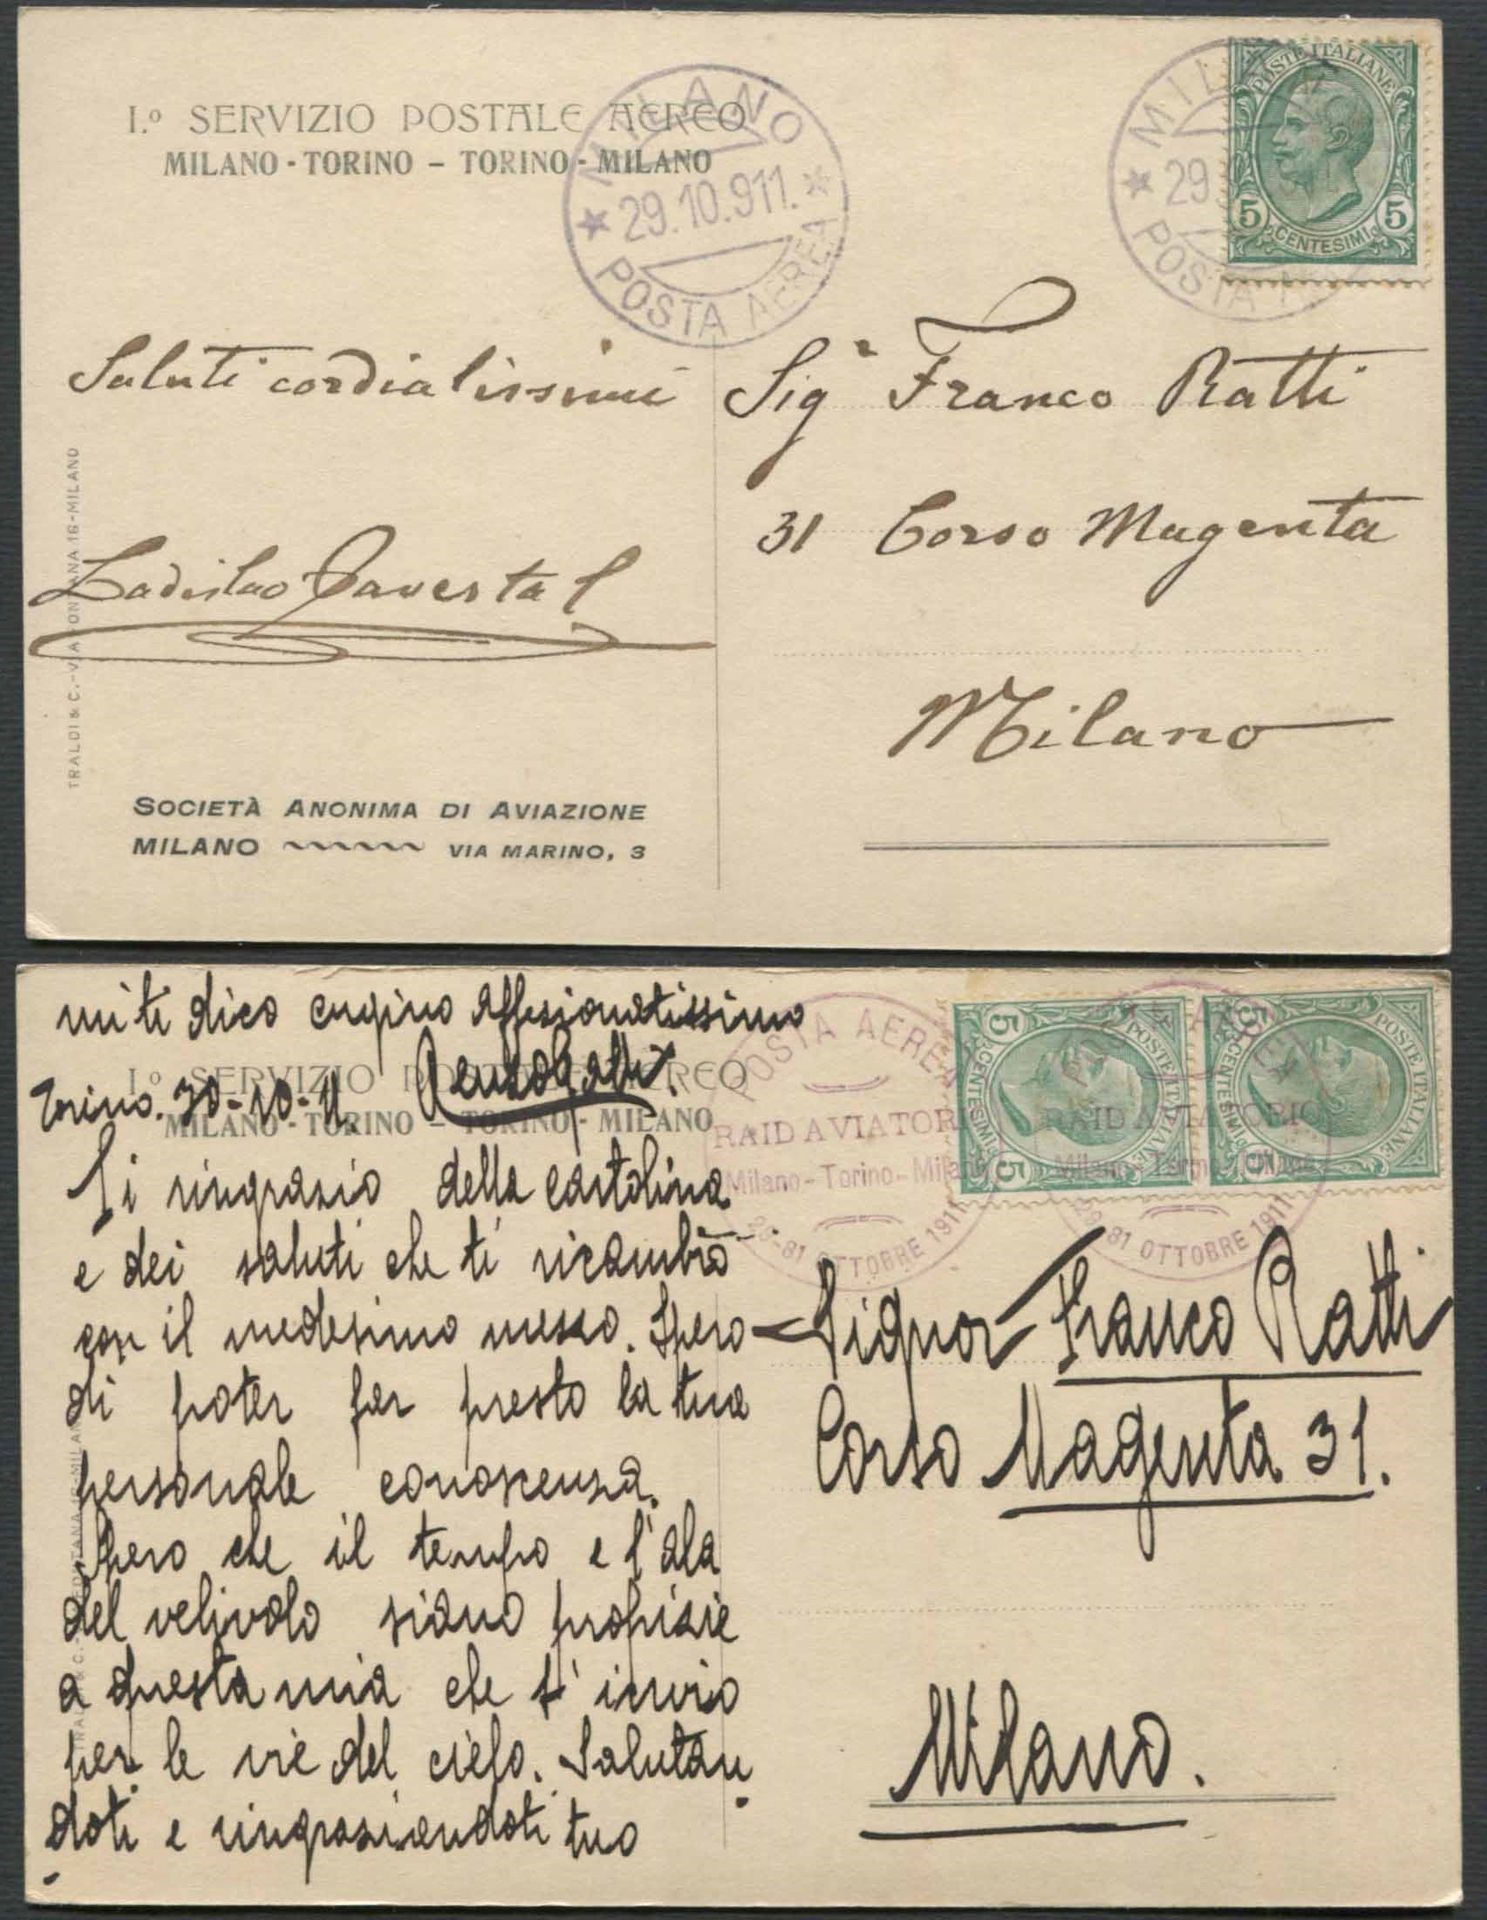 I.º SERVIZIO POSTALE AEREO
MILANO - TORINO – TORINO - MILANO
MILANO
29.10.911.
POSTA AEREA
MIL
29
POSTA A
POSTE ITALIANE
5 5
CENTESIMI
Saluti cordialissimi
Sigr Franco Ratti
31 Corso Magenta
Milano
Ladislao
TRALDI & C. - VIA FONTANA 16 - MILANO
SOCIETÀ ANONIMA DI AVIAZIONE
MILANO VIA MARINO, 3
mi ti dico cugino affezionatissimo
I.º SERVIZIO POSTALE AEREO
Torino. 30-10-11
MILANO - TORINO – TORINO - MILANO
Ti ringrazio della cartolina
e dei saluti che ti ricambio
con il medesimo mezzo. Spero
di poter far presto la tua
personale conoscenza.
Spero che il tempo e l'ala
del velivolo siano propizie
a questa mia che t'invio
per le vie del cielo. Salutan
doti e ringraziandoti tuo
POSTA AEREA
RAID AVIATORIO
Milano - Torino - Milano
29-31 OTTOBRE 1911
POSTE ITALIANE
5 5
CENTESIMI
POSTE ITALIANE
5 5
CENTESIMI
RAID AVIATORIO
Milano - Torino - Milano
29-31 OTTOBRE 1911
Signor Franco Ratti
Corso Magenta 31.
Milano.
TRALDI & C. - VIA FONTANA 16 - MILANO